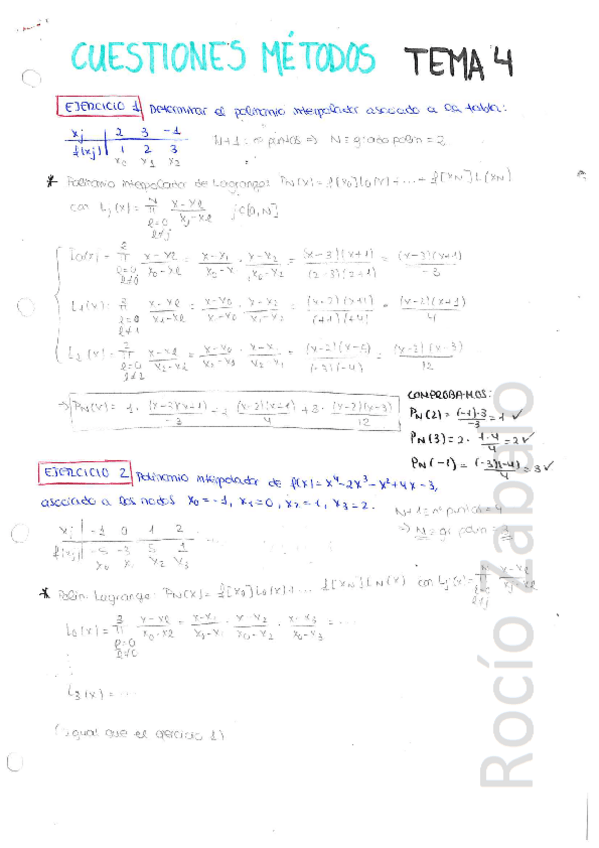 CUESTIONES MÉTODOS TEMA 4
EJERCICIO 1 Determinar el polinomio interpolador asociado a la tabla:
xj | 2 3 -1
f(xj) | 1 2 3
x0 x1 x2
N+1 = nº puntos => N = grado polin = 2
* Polinomio interpolador de Lagrange: PN(x) = f[x0]L0(x) + ... + f[xN]L(xN)
con Lj(x) = N π l=0 l≠j x-xl / xj-xl j∈[0,N]
L0(x) = 2 π l=0 l≠0 x-xl / x0-xl = x-x1 / x0-x1 · x-x2 / x0-x2 = (x-3)(x+1) / (2-3)(2+1) = (x-3)(x+1) / -3
L1(x) = 2 π l=0 l≠1 x-xl / x1-xl = x-x0 / x1-x0 · x-x2 / x1-x2 = (x-2)(x+1) / (+1)(+4) = (x-2)(x+1) / 4
L2(x) = 2 π l=0 l≠2 x-xl / x2-xl = x-x0 / x2-x0 · x-x1 / x2-x1 = (x-2)(x-3) / (-3)(-4) = (x-2)(x-3) / 12
COMPROBAMOS:
-> PN(x) = 1 · (x-3)(x+1) / -3 + 2 (x-2)(x+1) / 4 + 3 · (x-2)(x-3) / 12
PN(2) = (-1)·3 / -3 = 1 ✓
PN(3) = 2 · 1·4 / 4 = 2 ✓
PN(-1) = (-3)(-4) / 4 = 3 ✓
EJERCICIO 2 Polinomio interpolador de f(x) = x⁴-2x³-x²+4x-3,
asociado a los nodos x0=-1, x1=0, x2=1, x3=2.
N+1 = nº puntos = 4
=> N = gr polin = 3
xj | -1 0 1 2
f(xj) | -5 -3 5 1
x0 x1 x2 x3
* Polin. Lagrange: PN(x) = f[x0]L0(x) + ... f[xN]LN(x) con Lj(x) = N π l=0 l≠j x-xl / xj-xl
L0(x) = 3 π l=0 l≠0 x-xl / x0-xl = x-x1 / x0-x1 · x-x2 / x0-x2 · x-x3 / x0-x3 = ...
L3(x) = ...
(igual que el ejercicio 1)
Rocío Zabalo